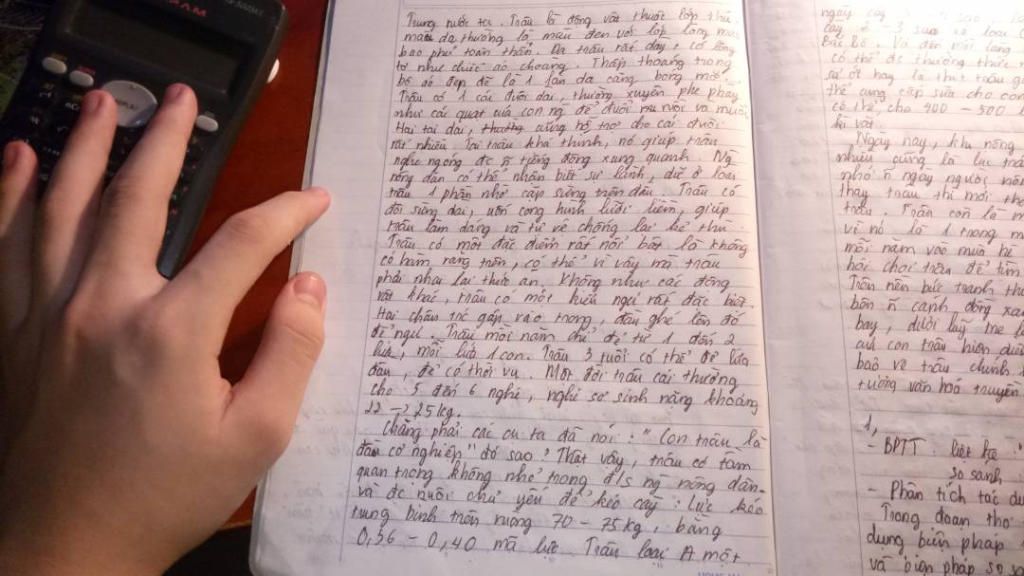 Trung nước ta. Trâu là động vật thuộc lớp thú
màu da thường là màu đen với lớp lông mao
bao phủ toàn thân. Da trâu rất dày, có lông
tơ như chiếc áo choàng. Thấp thoáng trong
bộ áo đẹp đẽ là 1 làn da căng bóng mỡ.
Trâu có 1 cái đuôi dài, thường xuyên phe phẩy
như cái quạt của con ng để đuổi ruồi và muỗi.
Hai tai dài, cũng hỗ trợ cho cái đuôi
rất nhiều. Tai trâu khá thính, nó giúp trâu
nghe ngóng đc tiếng động xung quanh. Ng
nông dân có thể nhận biết sự lành, dữ ở loài
trâu 1 phần nhờ cặp sừng trên đầu. Trâu có
đôi sừng dài, uốn cong hình lưỡi liềm, giúp
trâu làm dáng và tự vệ chống lại kẻ thù.
Trâu có một đặc điểm rất nổi bật là không
có hàm răng trên, có thể vì vậy mà trâu
phải nhai lại thức ăn. Không như các động
vật khác, trâu có một kiểu ngủ rất đặc biệt.
Hai chân trc gập vào trong, đầu ghé lên đó
để ngủ. Trâu mỗi năm chỉ đẻ từ 1 đến 2
lứa, mỗi lứa 1 con. Trâu 3 tuổi có thể đẻ lứa
đầu, đẻ có thời vụ. Một đời trâu cái thường
cho 5 đến 6 nghé, nghé sơ sinh nặng khoảng
22 - 25 kg.
Chẳng phải các cụ ta đã nói: "Con trâu là
đầu cơ nghiệp" đó sao? Thật vậy, trâu có tầm
quan trọng không nhỏ trong đ/s ng nông dân
và đc nuôi chủ yếu để kéo cày. Lực kéo
trung bình trên ruộng 70 - 75 kg, bằng
0,36 - 0,40 mã lực. Trâu loại A một
ngày cày
cày 2 - 3 sào và loại
Bắc Bộ. Và đến mỗi làng
có thể đc thưởng thức
hay là thịt trâu
thể cung cấp sữa cho con
có thể cho 400 - 500
Ngày nay, khi nông
nhiều cũng là lúc trâu
nhờ ngày người nông
thay trâu thì mới
trâu. Trâu còn là
vì nó là 1 trong
mỗi năm vào mùa
hội chọi trâu để tìm
Trên nền bức tranh
bên cánh đồng
bay, dưới luỹ tre
con trâu hiện
bảo vệ trâu chính
tượng văn hoá truyền
1,
- BPTT: liệt kê:
so sánh:
- Phân tích tác dụng
- Trong đoạn thơ
dụng biện pháp
và biện pháp so sánh